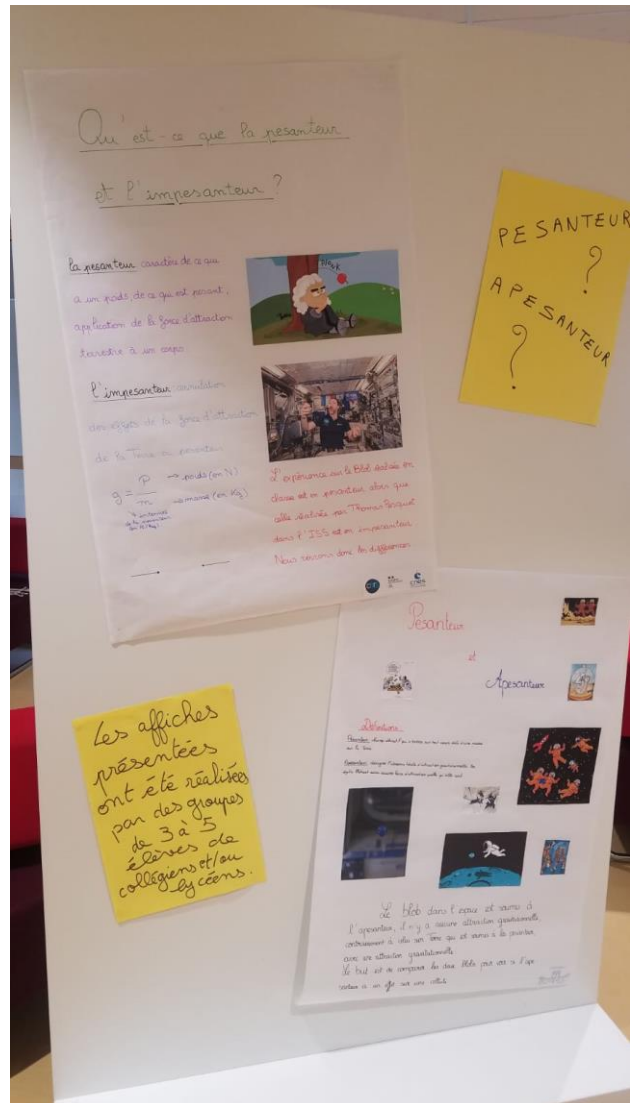 Qu'est-ce que la pesanteur
et l'impesanteur ?
la pesanteur: caractère de ce qui
a un poids, de ce qui est pesant ;
application de la force d'attraction
terrestre à un corps
l'impesanteur: annulation
des effets de la force d'attraction
de la Terre ou pesanteur
g = P/m
→ poids (en N)
→ masse (en Kg)
L'expérience sur le Blob réalisée en
classe est en pesanteur alors que
celle réalisée par Thomas Pesquet
dans l'ISS est en impesanteur
Nous verrons donc les différences
cnes
PESANTEUR
?
APESANTEUR
?
Les affiches
présentées
ont été réalisées
par des groupes
de 3 à 5
élèves de
collégiens et/ou
lycéens.
Pesanteur
et
Apesanteur
Définitions
Pesanteur:
sur la Terre
Apesanteur: désigne l'absence d'attraction gravitationnelle
Le blob dans l'espace est soumis à
l'apesanteur, il n'y a aucune attraction gravitationnelle,
contrairement à celui sur Terre qui est soumis à la pesanteur,
avec une attraction gravitationnelle.
Le but est de comparer les deux Blobs pour voir si l'ape
santeur a un effet sur une cellule.